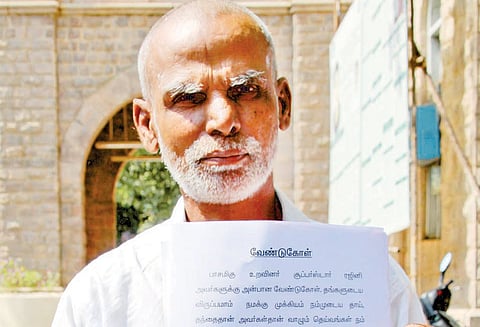 வேண்டுகோள்
பாசமிகு உறவினர் சூப்பர்ஸ்டார் ரஜினி
அவர்களுக்கு அன்பான வேண்டுகோள். தங்களுடைய
விருப்பமாம் நமக்கு முக்கியம் நம்முடைய தாய்,
தந்தைதான் அவர்கள்தான் வாழும் தெய்வங்கள் நம்